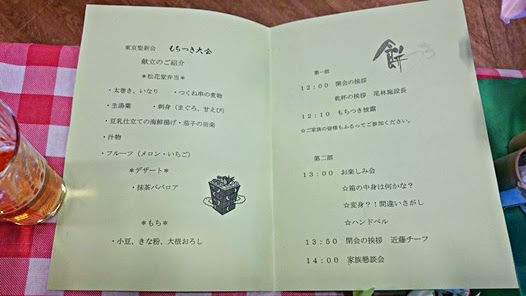 東京聖新会 もちつき大会
献立のご紹介
＊松花堂弁当＊
・太巻き、いなり ・つくね串の煮物
・生湯葉 ・刺身（まぐろ、甘えび）
・豆乳仕立ての海鮮揚げ・茄子の田楽
・汁物
・フルーツ（メロン・いちご）
＊デザート＊
・抹茶ババロア
＊もち＊
・小豆、きな粉、大根おろし
餅
第一部
12：00 開会の挨拶
乾杯の挨拶 尾林施設長
12：10 もちつき披露
☆ご家族の皆様もふるってご参加ください。
第二部
13：00 お楽しみ会
☆箱の中身は何かな？
☆変身？！間違いさがし
☆ハンドベル
13：50 閉会の挨拶 近藤チーフ
14：00 家族懇談会